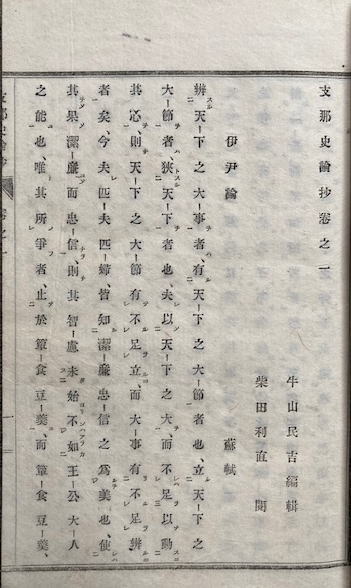 支那史論抄卷之一
牛山民吉編輯
柴田利直閲
伊尹論 蘇軾
辨天下之大事者、有天下之大節者也、立天下之
大節者、狹天下者也、夫以天下之大、而不足以動
其心、則天下之大節有不足立、而大事有不足辨
者矣、今夫匹夫匹婦、皆知潔廉忠信之爲美也、使
其果潔廉而忠信、則其智慮未始不如王公大人
之能也、唯其所爭者、止於簞食豆羹、而簞食豆羹、
支那史論抄 卷之一 一